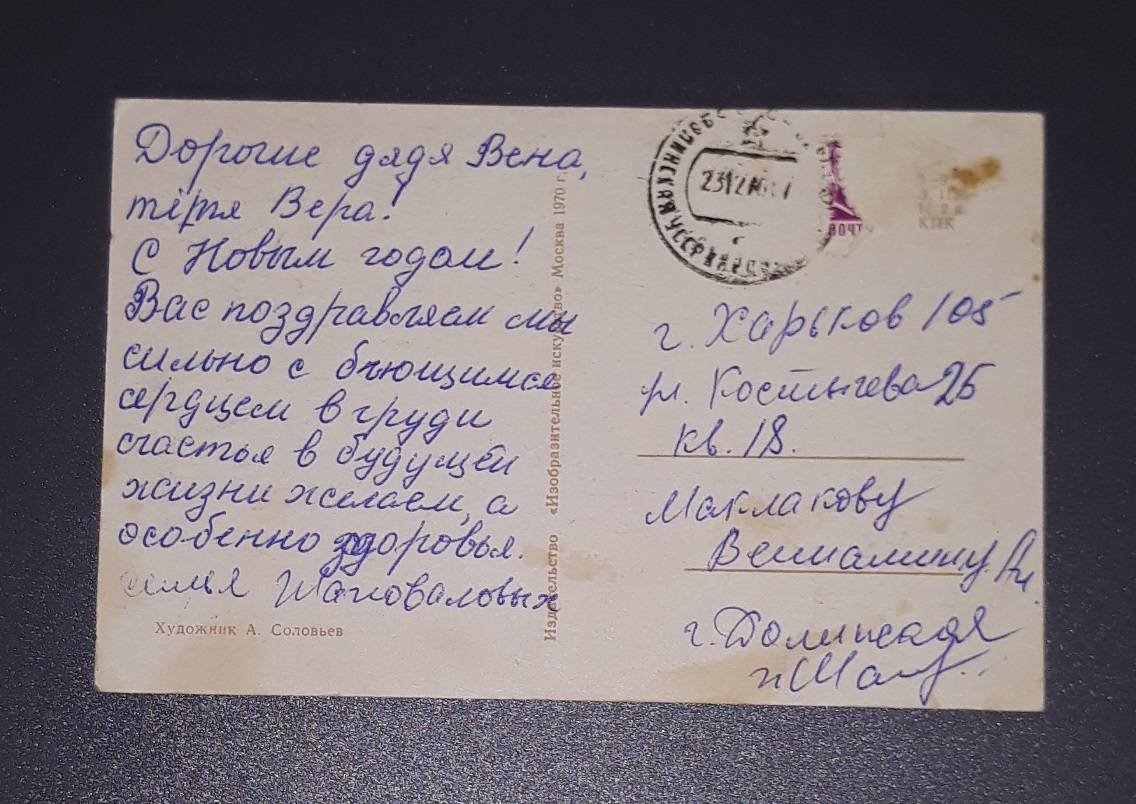 Дорогие дядя Вена,
тётя Вера!
С Новым годом!
Вас поздравляем мы
сильно с бьющимся
сердцем в груди
счастья в будущей
жизни желаем, а
особенно здоровья.
семья Шаповаловых
Художник А. Соловьев
Издательство «Изобразительное искусство» Москва 1970 г.
231270
ПОЧТ
г. Харьков 105
ул. Костычева 25
кв. 18.
Маклакову
Вениамину
г. Долинская